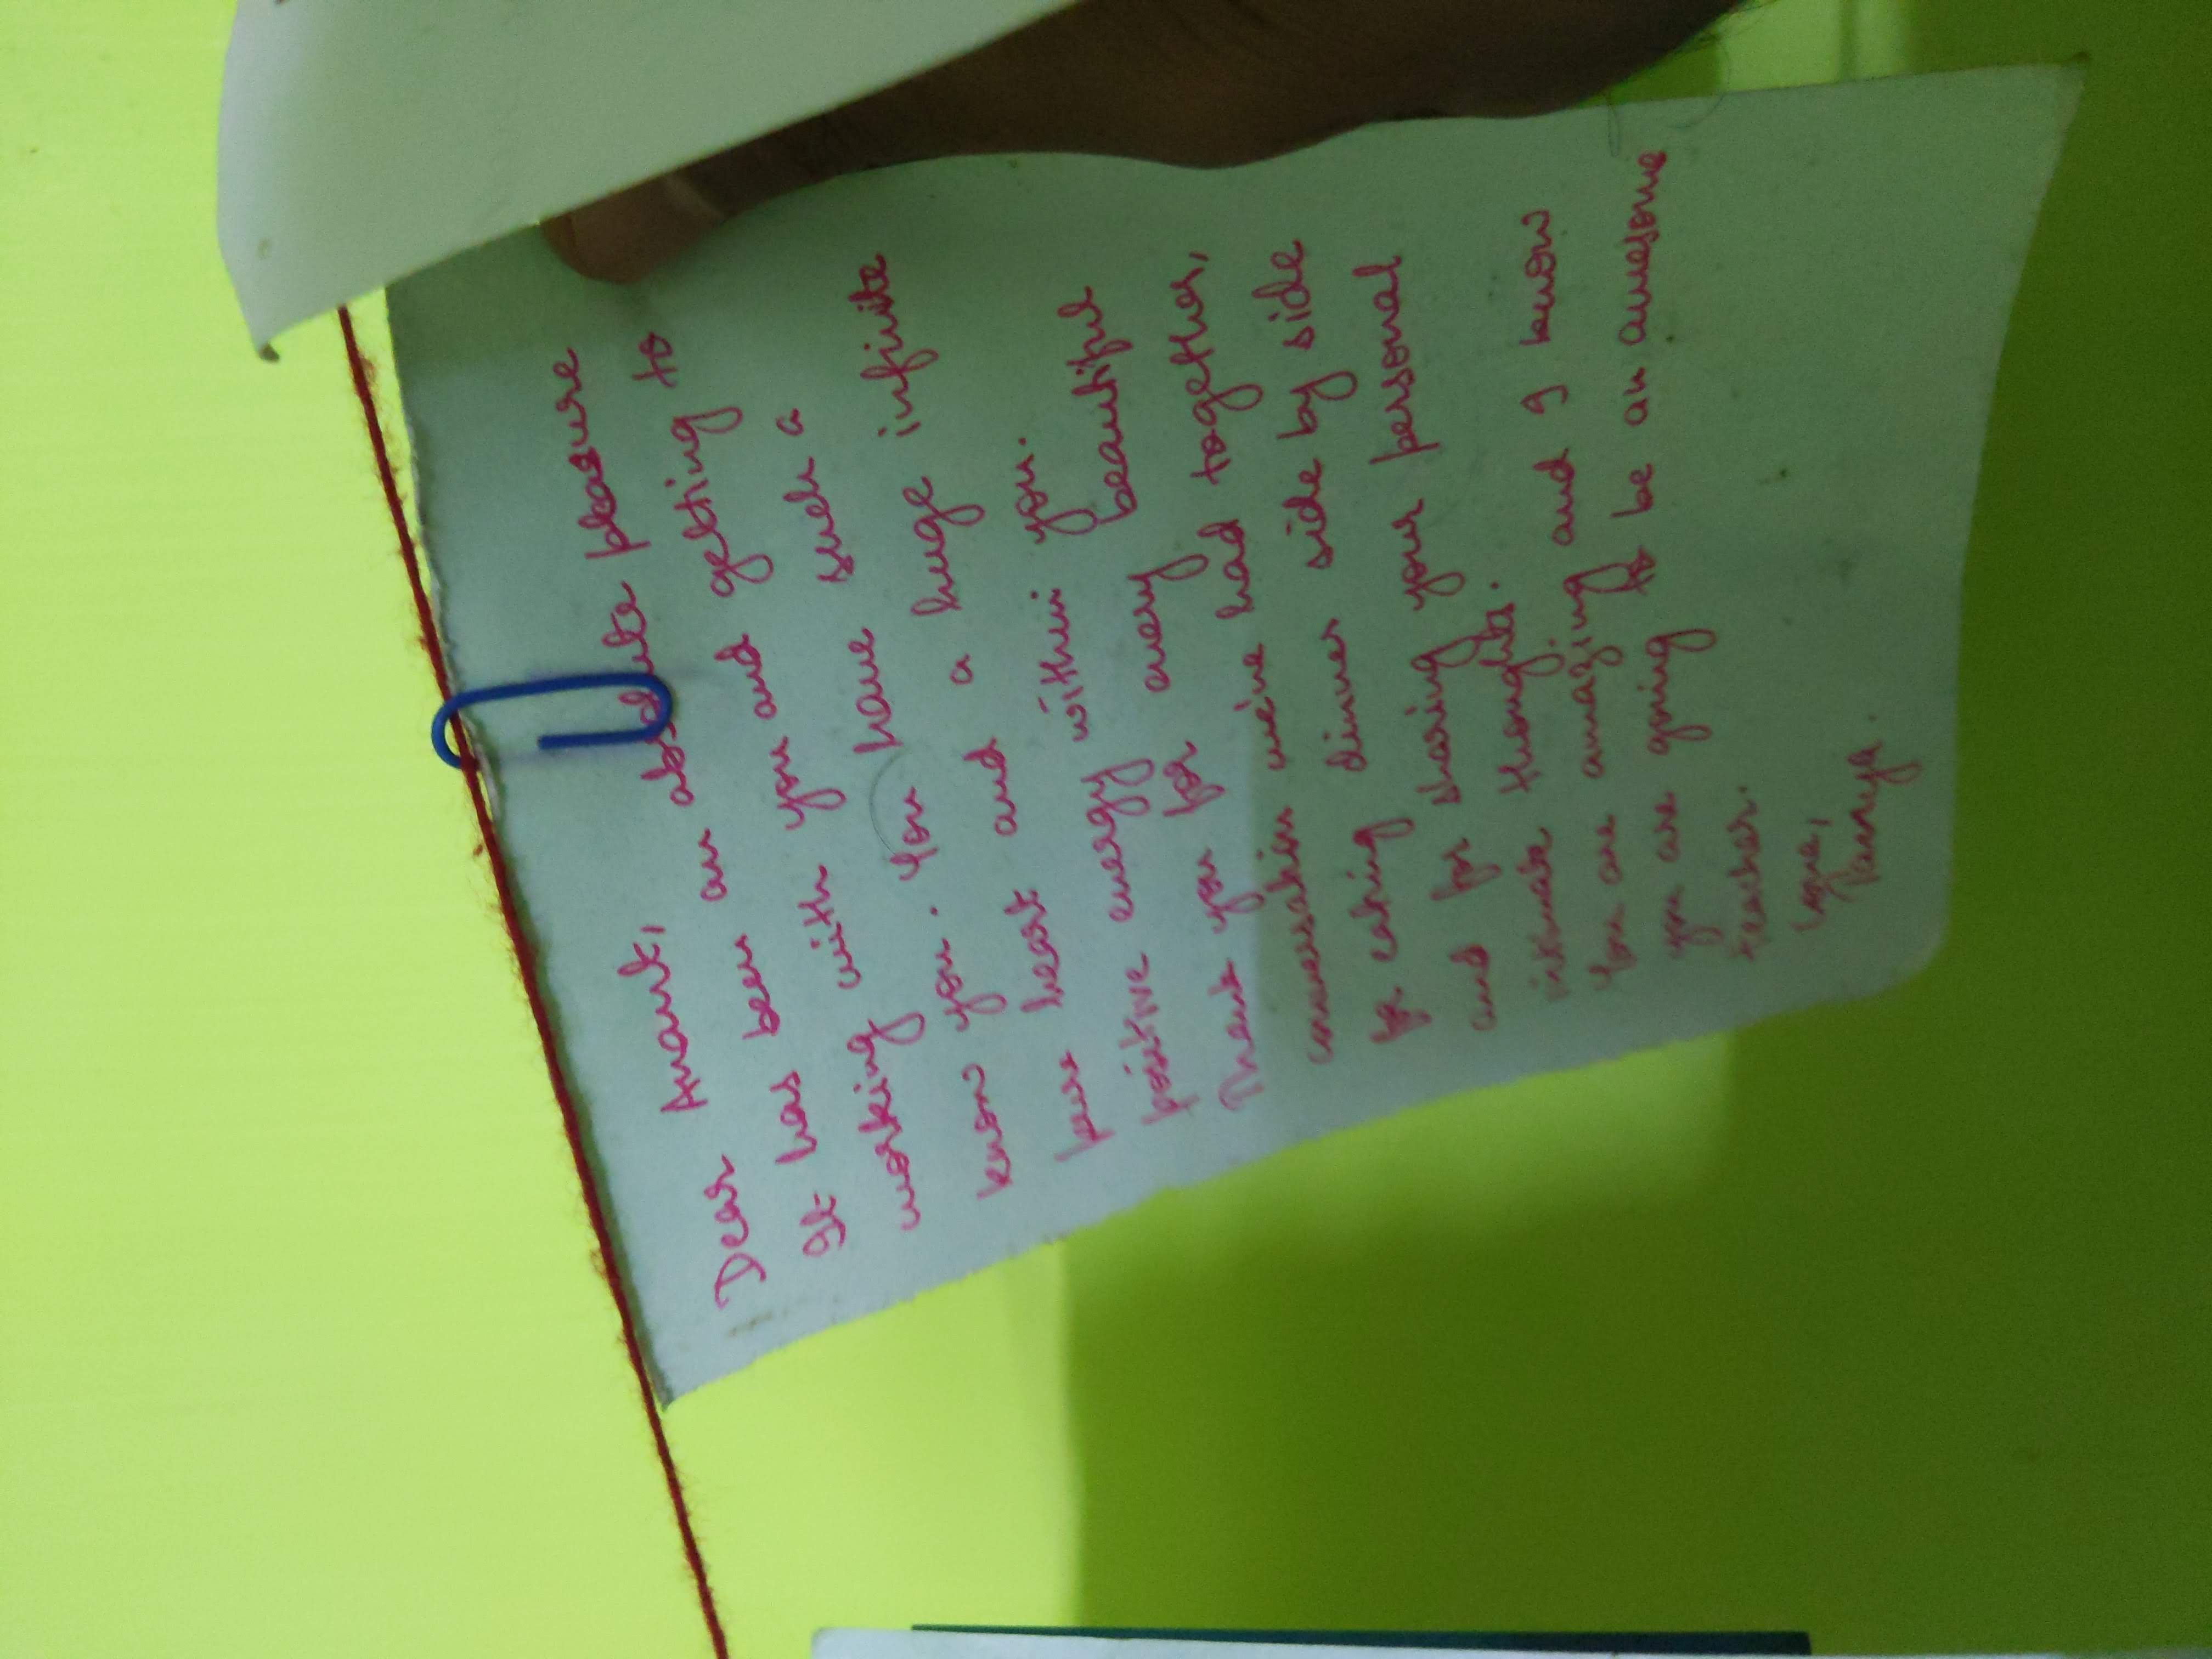 Dear Anant,
It has been an absolute pleasure
working with you and getting to
know you. You have such a
pure heart and a huge infinite
positive energy within you.
Thank you for every beautiful
conversation we've had together,
for eating dinner side by side
and for sharing your personal
intimate thoughts.
You are amazing and I know
you are going to be an awesome
teacher.
Love,